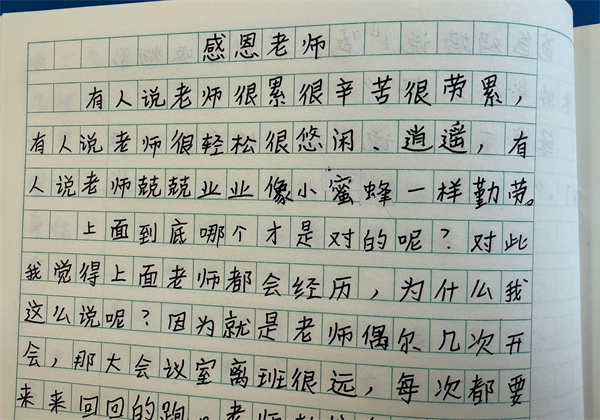 感恩老师
有人说老师很累很辛苦很劳累，
有人说老师很轻松很悠闲、逍遥，有
人说老师兢兢业业像小蜜蜂一样勤劳。
上面到底哪个才是对的呢？对此
我觉得上面老师都会经历，为什么我
这么说呢？因为就是老师偶尔几次开
会，那大会议室离班很远，每次都要
来来回回的跑。老师